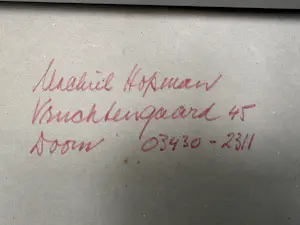 Machiel Hopman
Vruchtengaard 45
Doorn 03430-2311